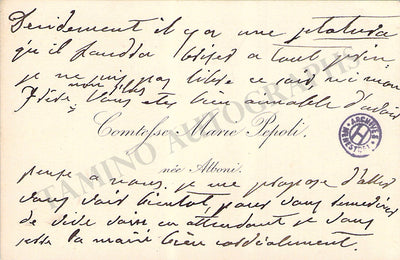 Décidement il y a une jettatura
qu'il faudra briser a tout prix,
je ne suis pas libre ce soir ni mon
mari
Vous etes bien aimable d'avoir
Comtesse Marie Pepoli.
née Alboni.
pensé a nous, je me propose d'aller
vous voir bientot, pour vous remercier
de vive voix en attendant je vous
serre la main bien cordialement.
TAMINO AUTOGRAPHS
ARCHIVES